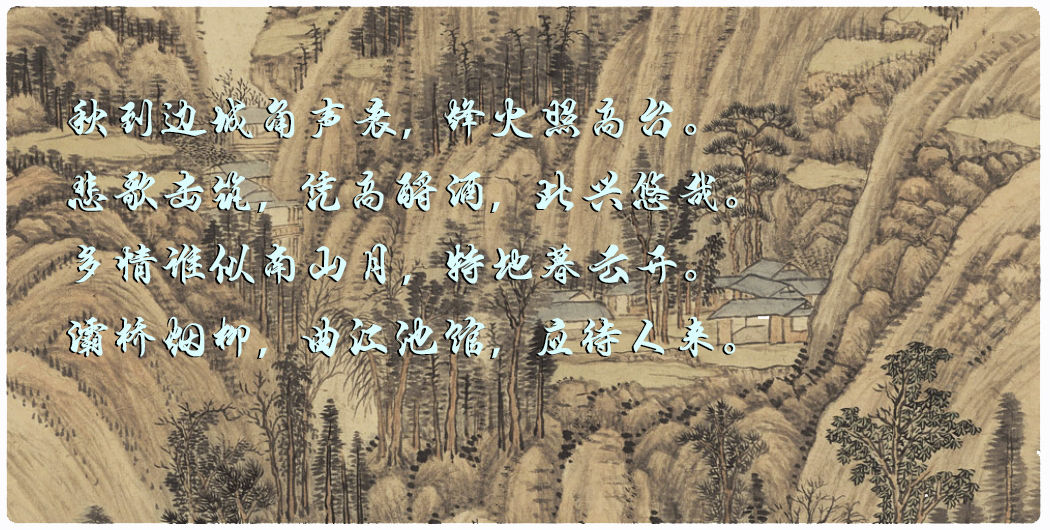 秋到边城角声哀，烽火照高台。
悲歌击筑，凭高酹酒，此兴悠哉。
多情谁似南山月，特地暮云开。
灞桥烟柳，曲江池馆，应待人来。